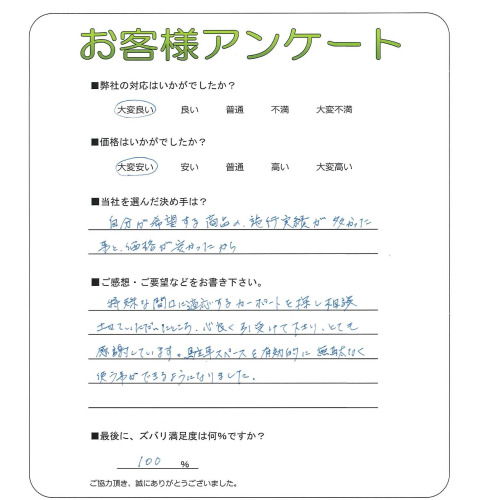 お客様アンケート
■弊社の対応はいかがでしたか？
大変良い 良い 普通 不満 大変不満
■価格はいかがでしたか？
大変安い 安い 普通 高い 大変高い
■当社を選んだ決め手は？
自分が希望する商品の施行実績が多かった
事と、価格が安かったから
■ご感想・ご要望などをお書き下さい。
特殊な間口に適応するカーポートを探し相談
させていただいたところ、心良く引受けて下さり、とても
感謝しています。駐車スペースを有効的に無駄なく
使う事ができるようになりました。
■最後に、ズバリ満足度は何%ですか？
100 %
ご協力頂き、誠にありがとうございました。